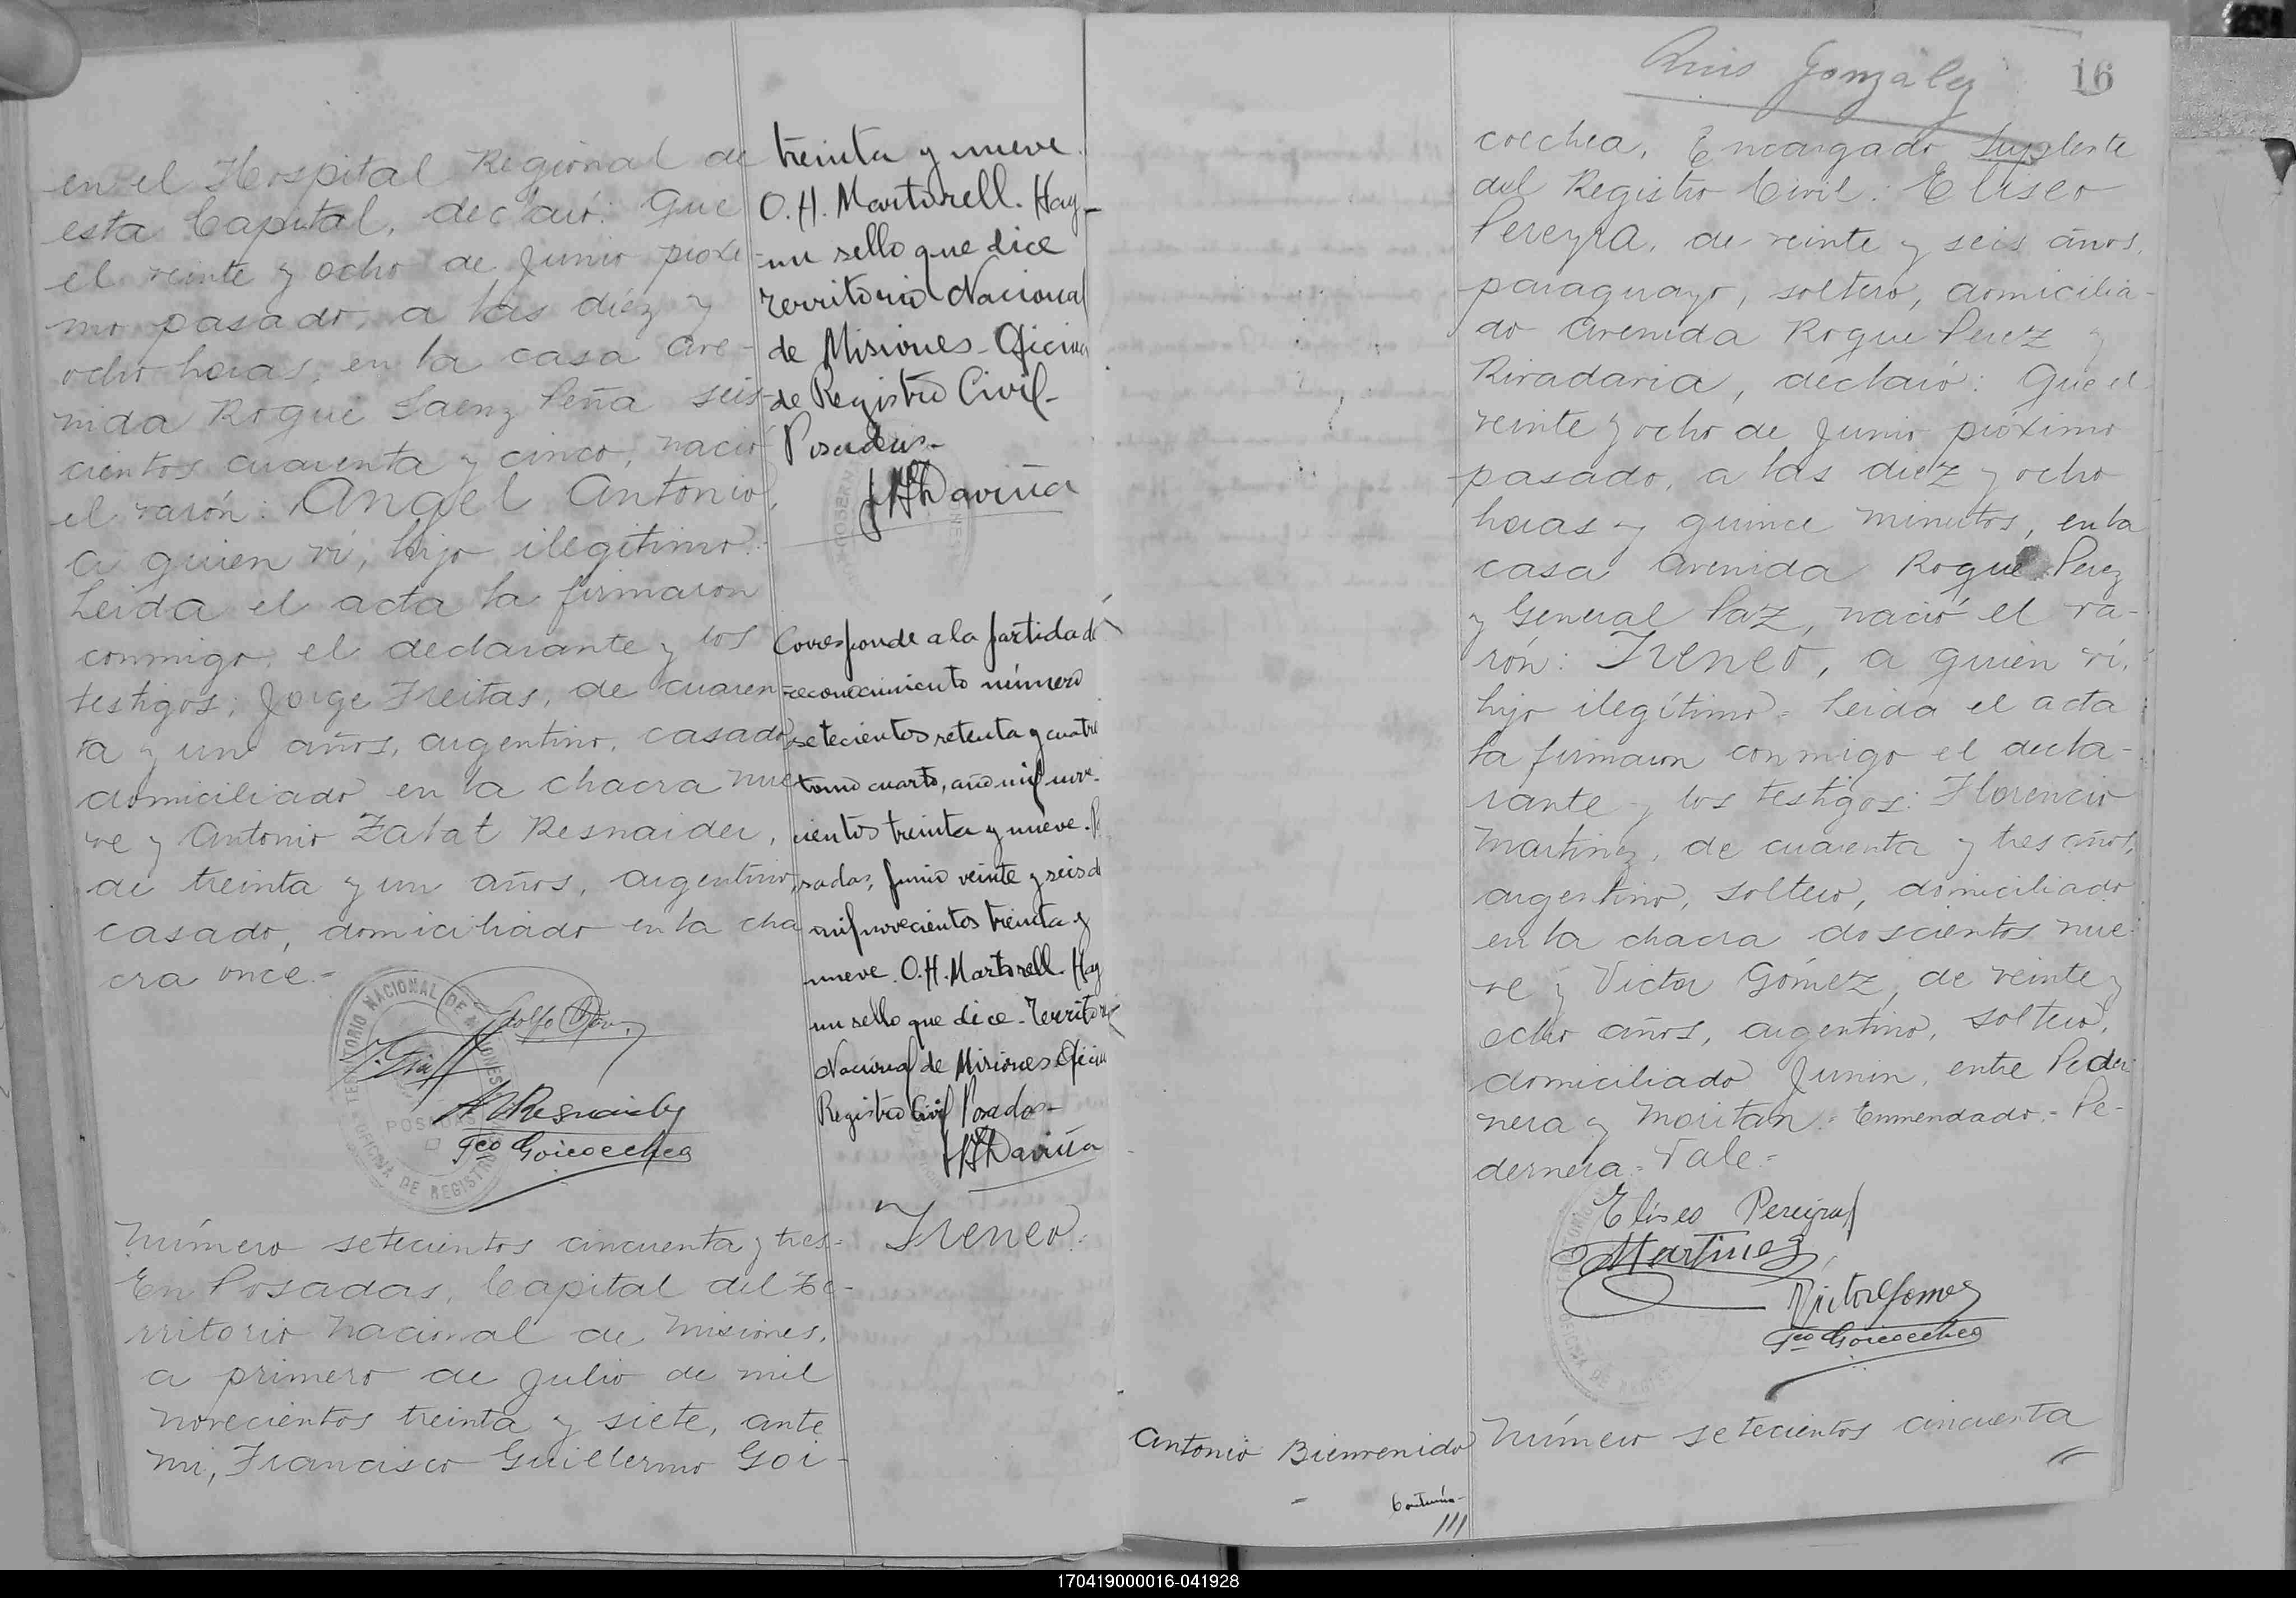 en el Hospital Regional de
esta Capital, declaró: Que
el veinte y ocho de Junio próxi-
mo pasado, a las diéz y
ocho horas, en la casa Ave-
nida Roque Saenz Peña seis-
cientos cuarenta y cinco, nació
el varón: Angel Antonio,
a quien ví, hijo ilegítimo.
Leida el acta la firmaron
conmigo, el declarante y los
testigos: Jorge Freitas, de cuaren-
ta y un años, argentino, casado,
domiciliado en la chacra nue-
ve y Antonio Zalat Resnaider,
de treinta y un años, argentino,
casado, domiciliado en la cha
cra once.=
TERRITORIO NACIONAL DE MISIONES
POSADAS
OFICINA DE REGISTRO
A Z Resnaider
Fco Goicoechea
Número setecientos cincuenta y tres=
En Posadas, Capital del Te-
rritorio Nacional de Misiones,
a primero de Julio de mil
novecientos treinta y siete, ante
mi, Francisco Guillermo Goi-
treinta y nueve.
O. H. Martorell. Hay-
un sello que dice
Territorio Nacional
de Misiones-Oficina
de Registro Civil-
Posadas-
Daviña
Corresponde a la partida de
reconocimiento número
setecientos setenta y cuatro
tomo cuarto, año mil nove-
cientos treinta y nueve. P
sadas, Junio veinte y seis d
mil novecientos treinta y
nueve. O. H. Martorell. Hay
un sello que dice-Territorio
Nacional de Misiones Oficina
Registro Civil Posadas-
Daviña
Ireneo.
Luis González
16
coechea, Encargado Suplente
del Registro Civil: Eliseo
Pereyra, de veinte y seis años,
paraguayo, soltero, domicilia-
do Avenida Roque Perez y
Rivadavia, declaró: Que el
veinte y ocho de Junio próximo
pasado, a las diez y ocho
horas y quince minutos, en la
casa Avenida Roque Perez
y General Paz, nació el va-
rón: Ireneo, a quien ví,
hijo ilegítimo.= Leida el acta
la firmaron conmigo el decla-
rante y los testigos: Florencio
Martinez, de cuarenta y tres años,
argentino, soltero, domiciliado
en la chacra doscientos nue-
ve y Victor Gómez, de veinte y
ocho años, argentino, soltero,
domiciliado Junin, entre Peder-
nera y Moritan.= Enmendado.= Pe-
dernera.= Vale.=
Eliseo Pereyra
Martinez
Victor Gomez
Fco Goicoechea
Antonio Bienvenido
Número setecientos cincuenta
Continúa-
170419000016-041928